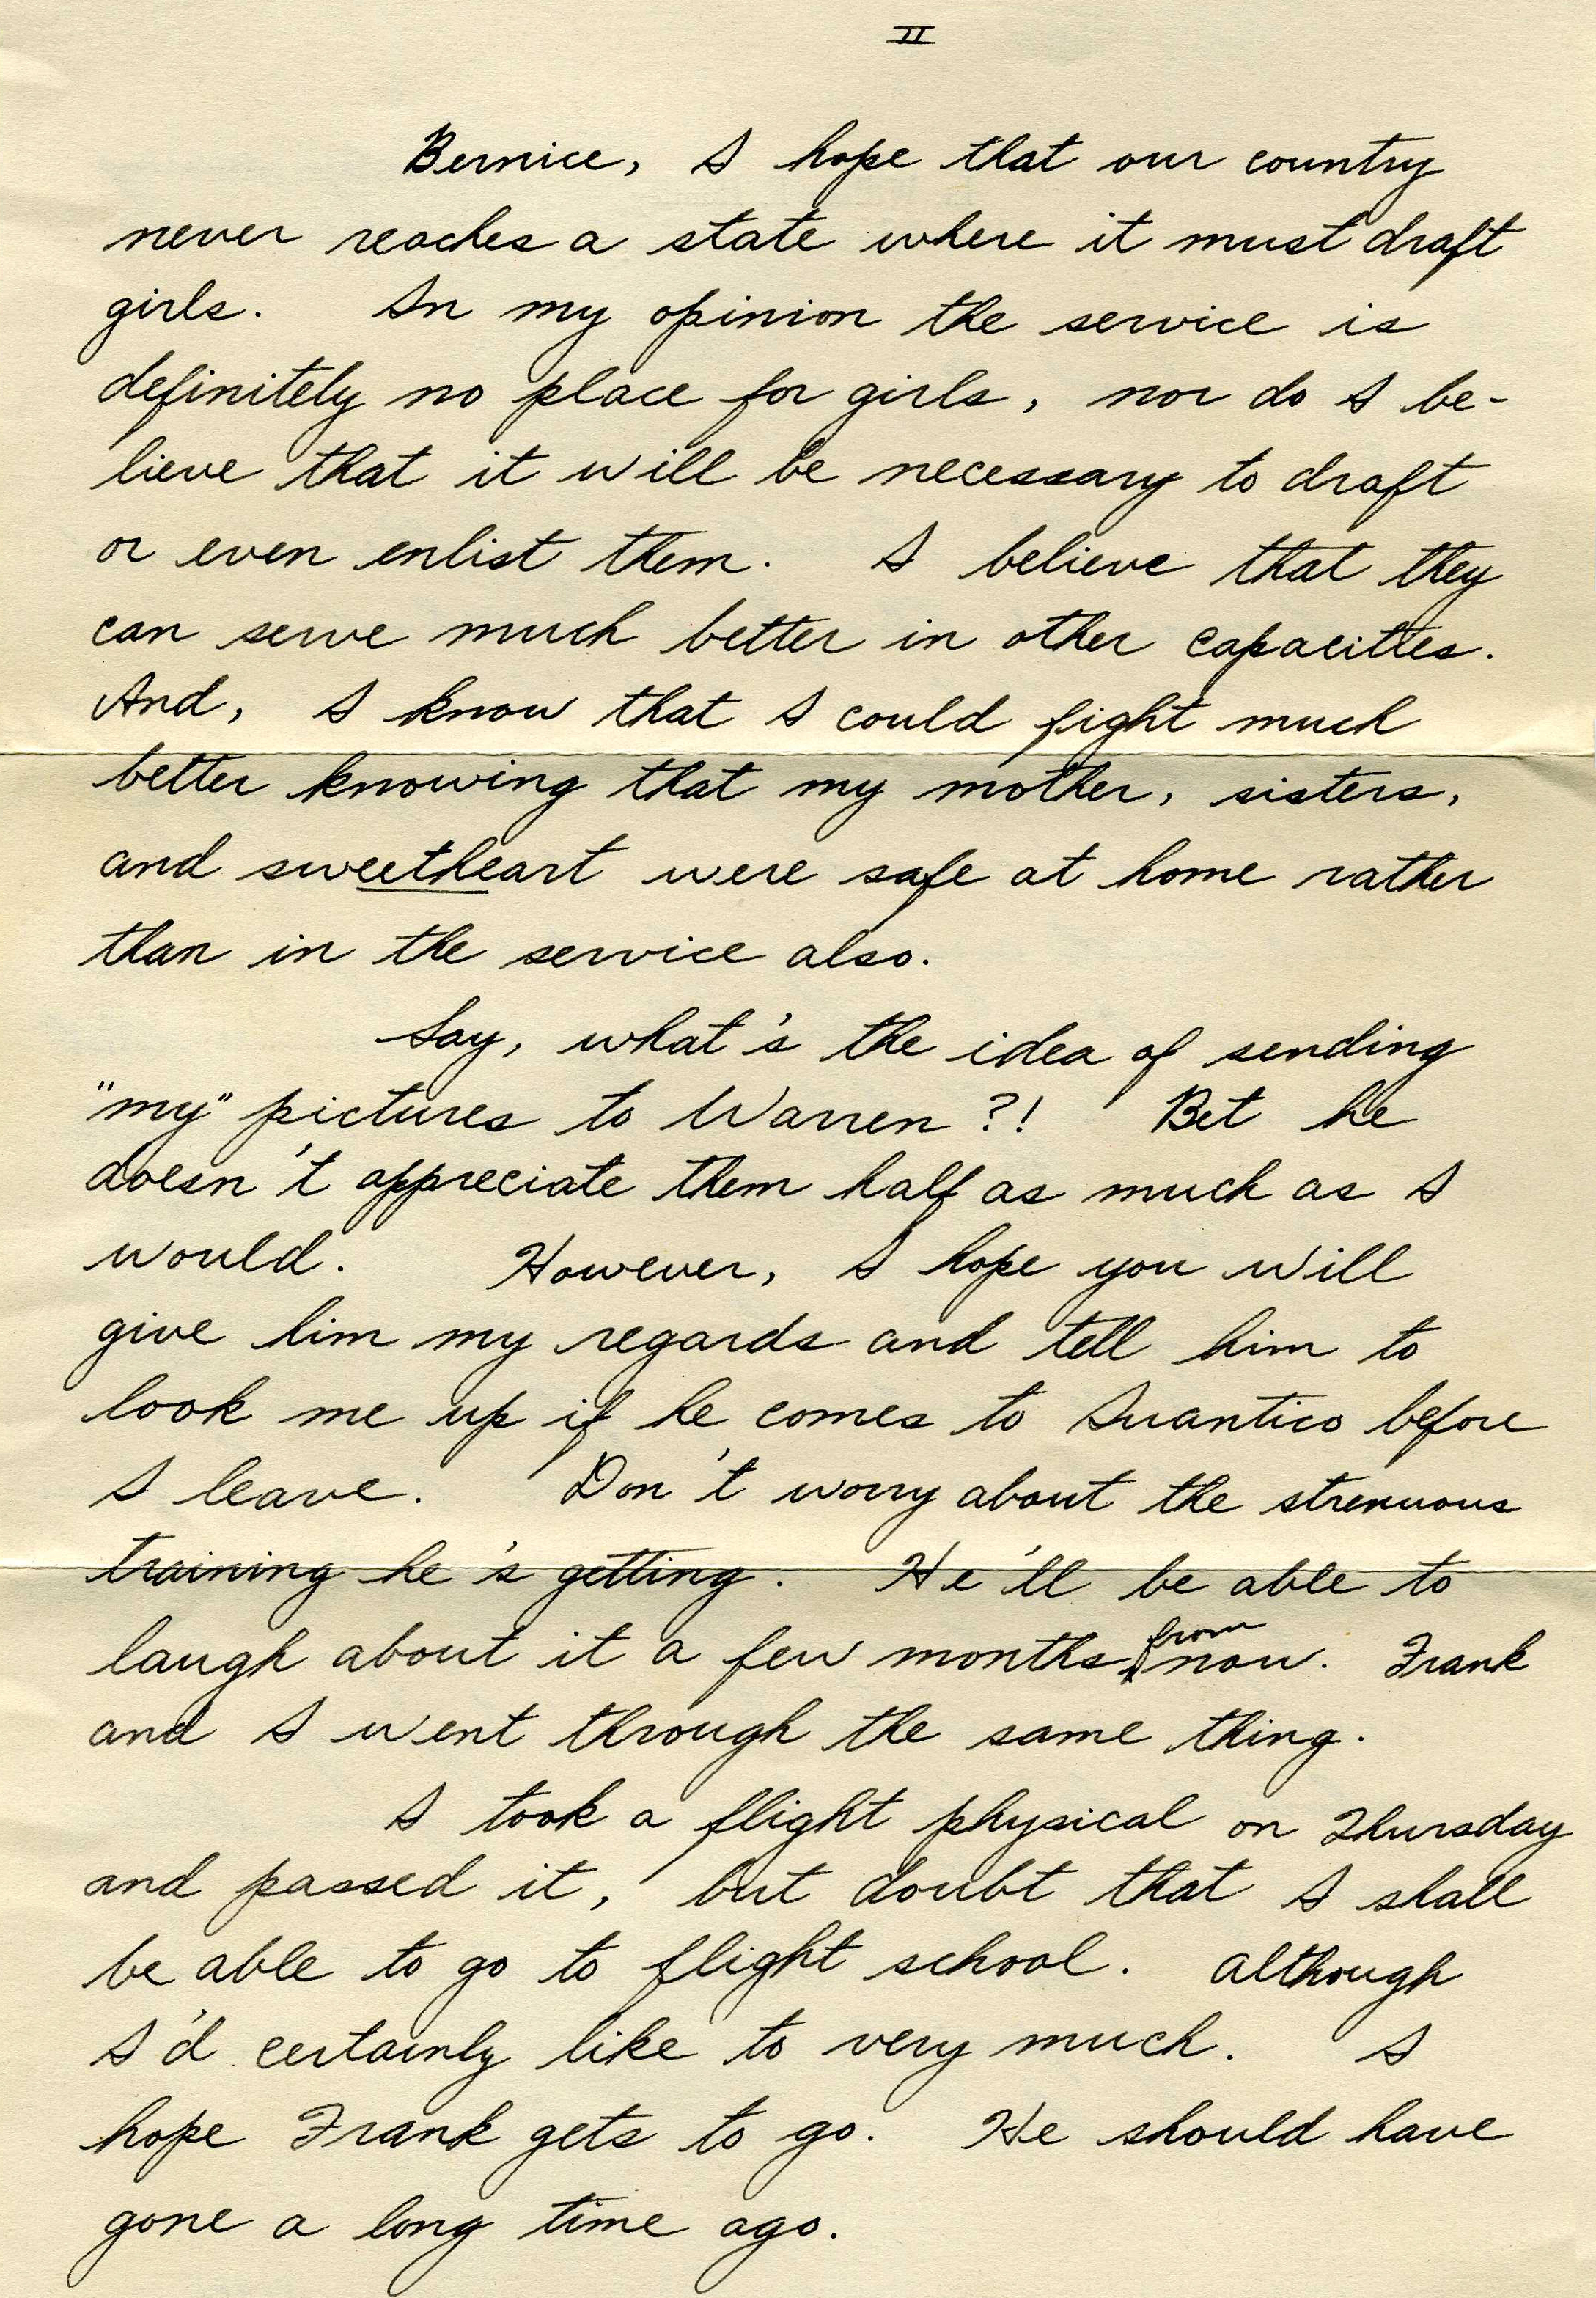 II
Bernice, I hope that our country
never reaches a state where it must draft
girls. In my opinion the service is
definitely no place for girls, nor do I be-
lieve that it will be necessary to draft
or even enlist them. I believe that they
can serve much better in other capacities.
And, I know that I could fight much
better knowing that my mother, sisters,
and sweetheart were safe at home rather
than in the service also.
Say, what's the idea of sending
"my" pictures to Warren?! Bet he
doesn't appreciate them half as much as I
would. However, I hope you will
give him my regards and tell him to
look me up if he comes to Quantico before
I leave. Don't worry about the strenuous
training he's getting. He'll be able to
laugh about it a few months from now. Frank
and I went through the same thing.
I took a flight physical on Thursday
and passed it, but doubt that I shall
be able to go to flight school. Although
I'd certainly like to very much. I
hope Frank gets to go. He should have
gone a long time ago.